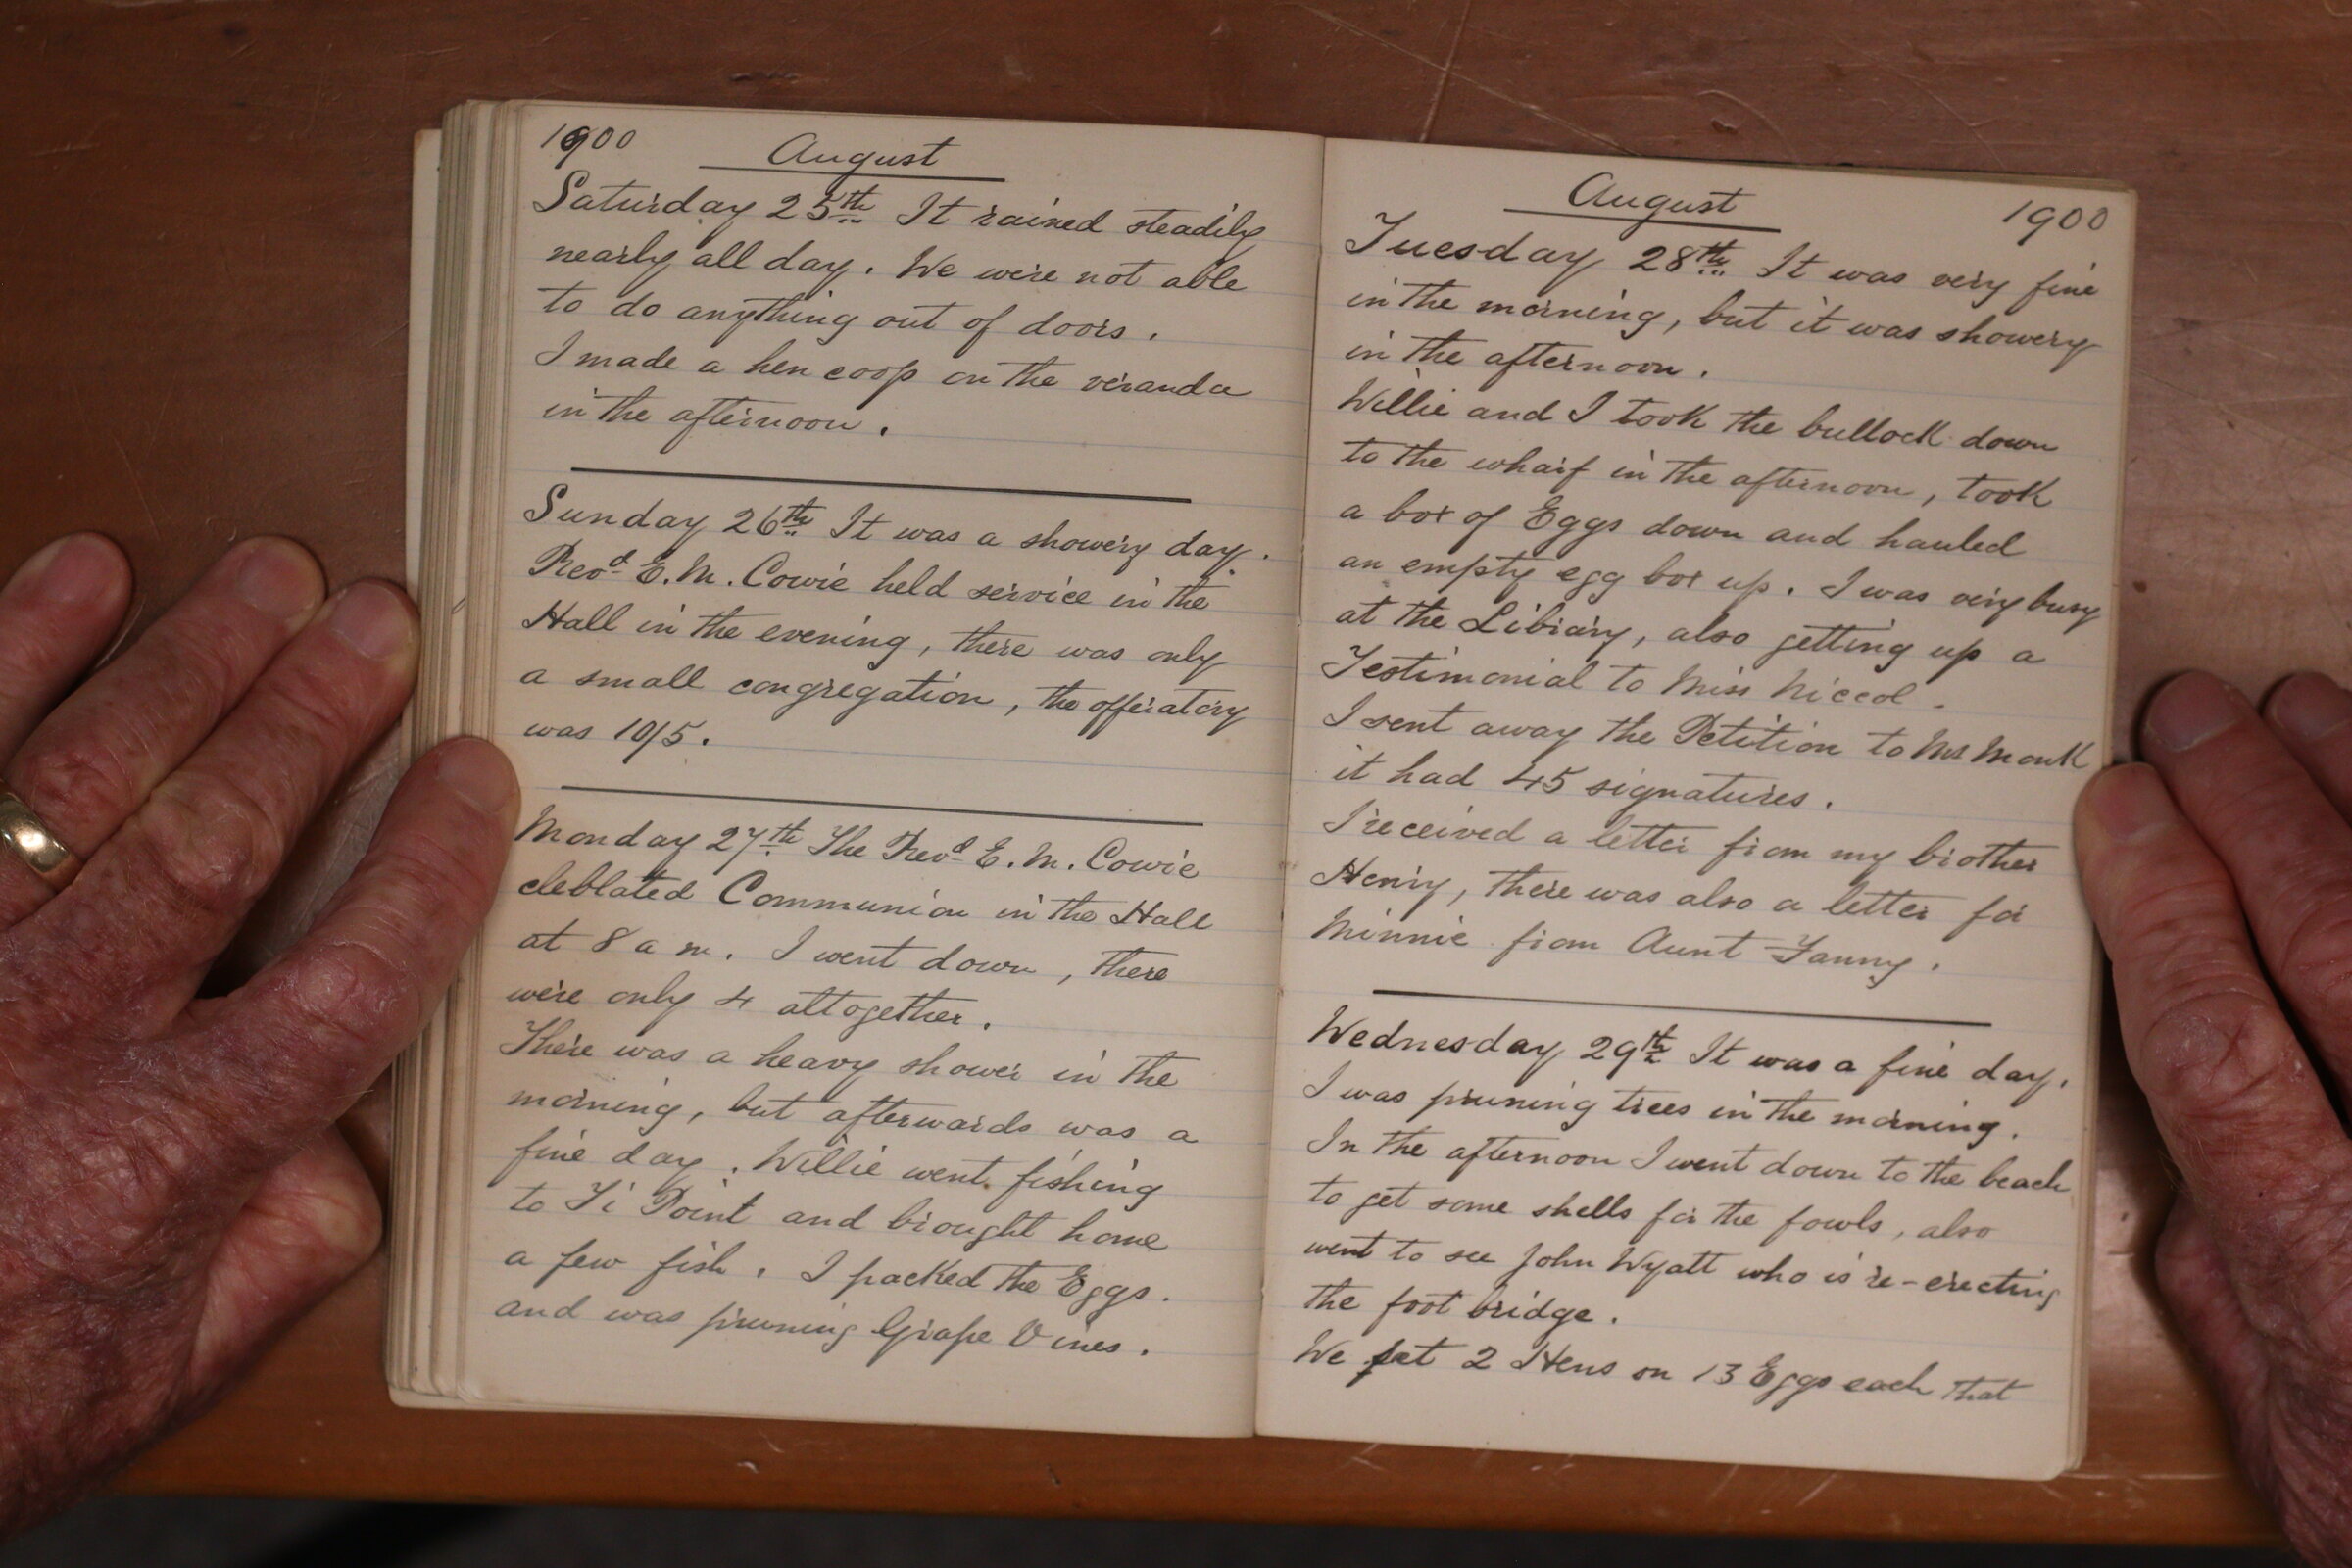 1900
August
Saturday 25th It rained steadily
nearly all day. We were not able
to do anything out of doors.
I made a hen coop on the veranda
in the afternoon.
Sunday 26th It was a showery day.
Revd E. M. Cowie held service in the
Hall in the evening, there was only
a small congregation, the offeratory
was 10/5.
Monday 27th The Revd E. M. Cowie
cleblated Communion in the Hall
at 8 a m. I went down, there
were only 4 altogether.
There was a heavy shower in the
morning, but afterwards was a
fine day. Willie went fishing
to Ti Point and brought home
a few fish. I packed the Eggs.
and was pruning Grape Vines.
August
1900
Tuesday 28th It was very fine
in the morning, but it was showery
in the afternoon.
Willie and I took the bullock down
to the wharf in the afternoon, took
a box of Eggs down and hauled
an empty egg box up. I was very busy
at the Library, also getting up a
Testimonial to Miss Niccol.
I sent away the Petition to Mr Monk
it had 45 signatures.
I received a letter from my brother
Henry, there was also a letter for
Minnie from Aunt Fanny.
Wednesday 29th It was a fine day.
I was pruning trees in the morning.
In the afternoon I went down to the beach
to get some shells for the fowls, also
went to see John Wyatt who is re-erecting
the foot bridge.
We set 2 Hens on 13 Eggs each that